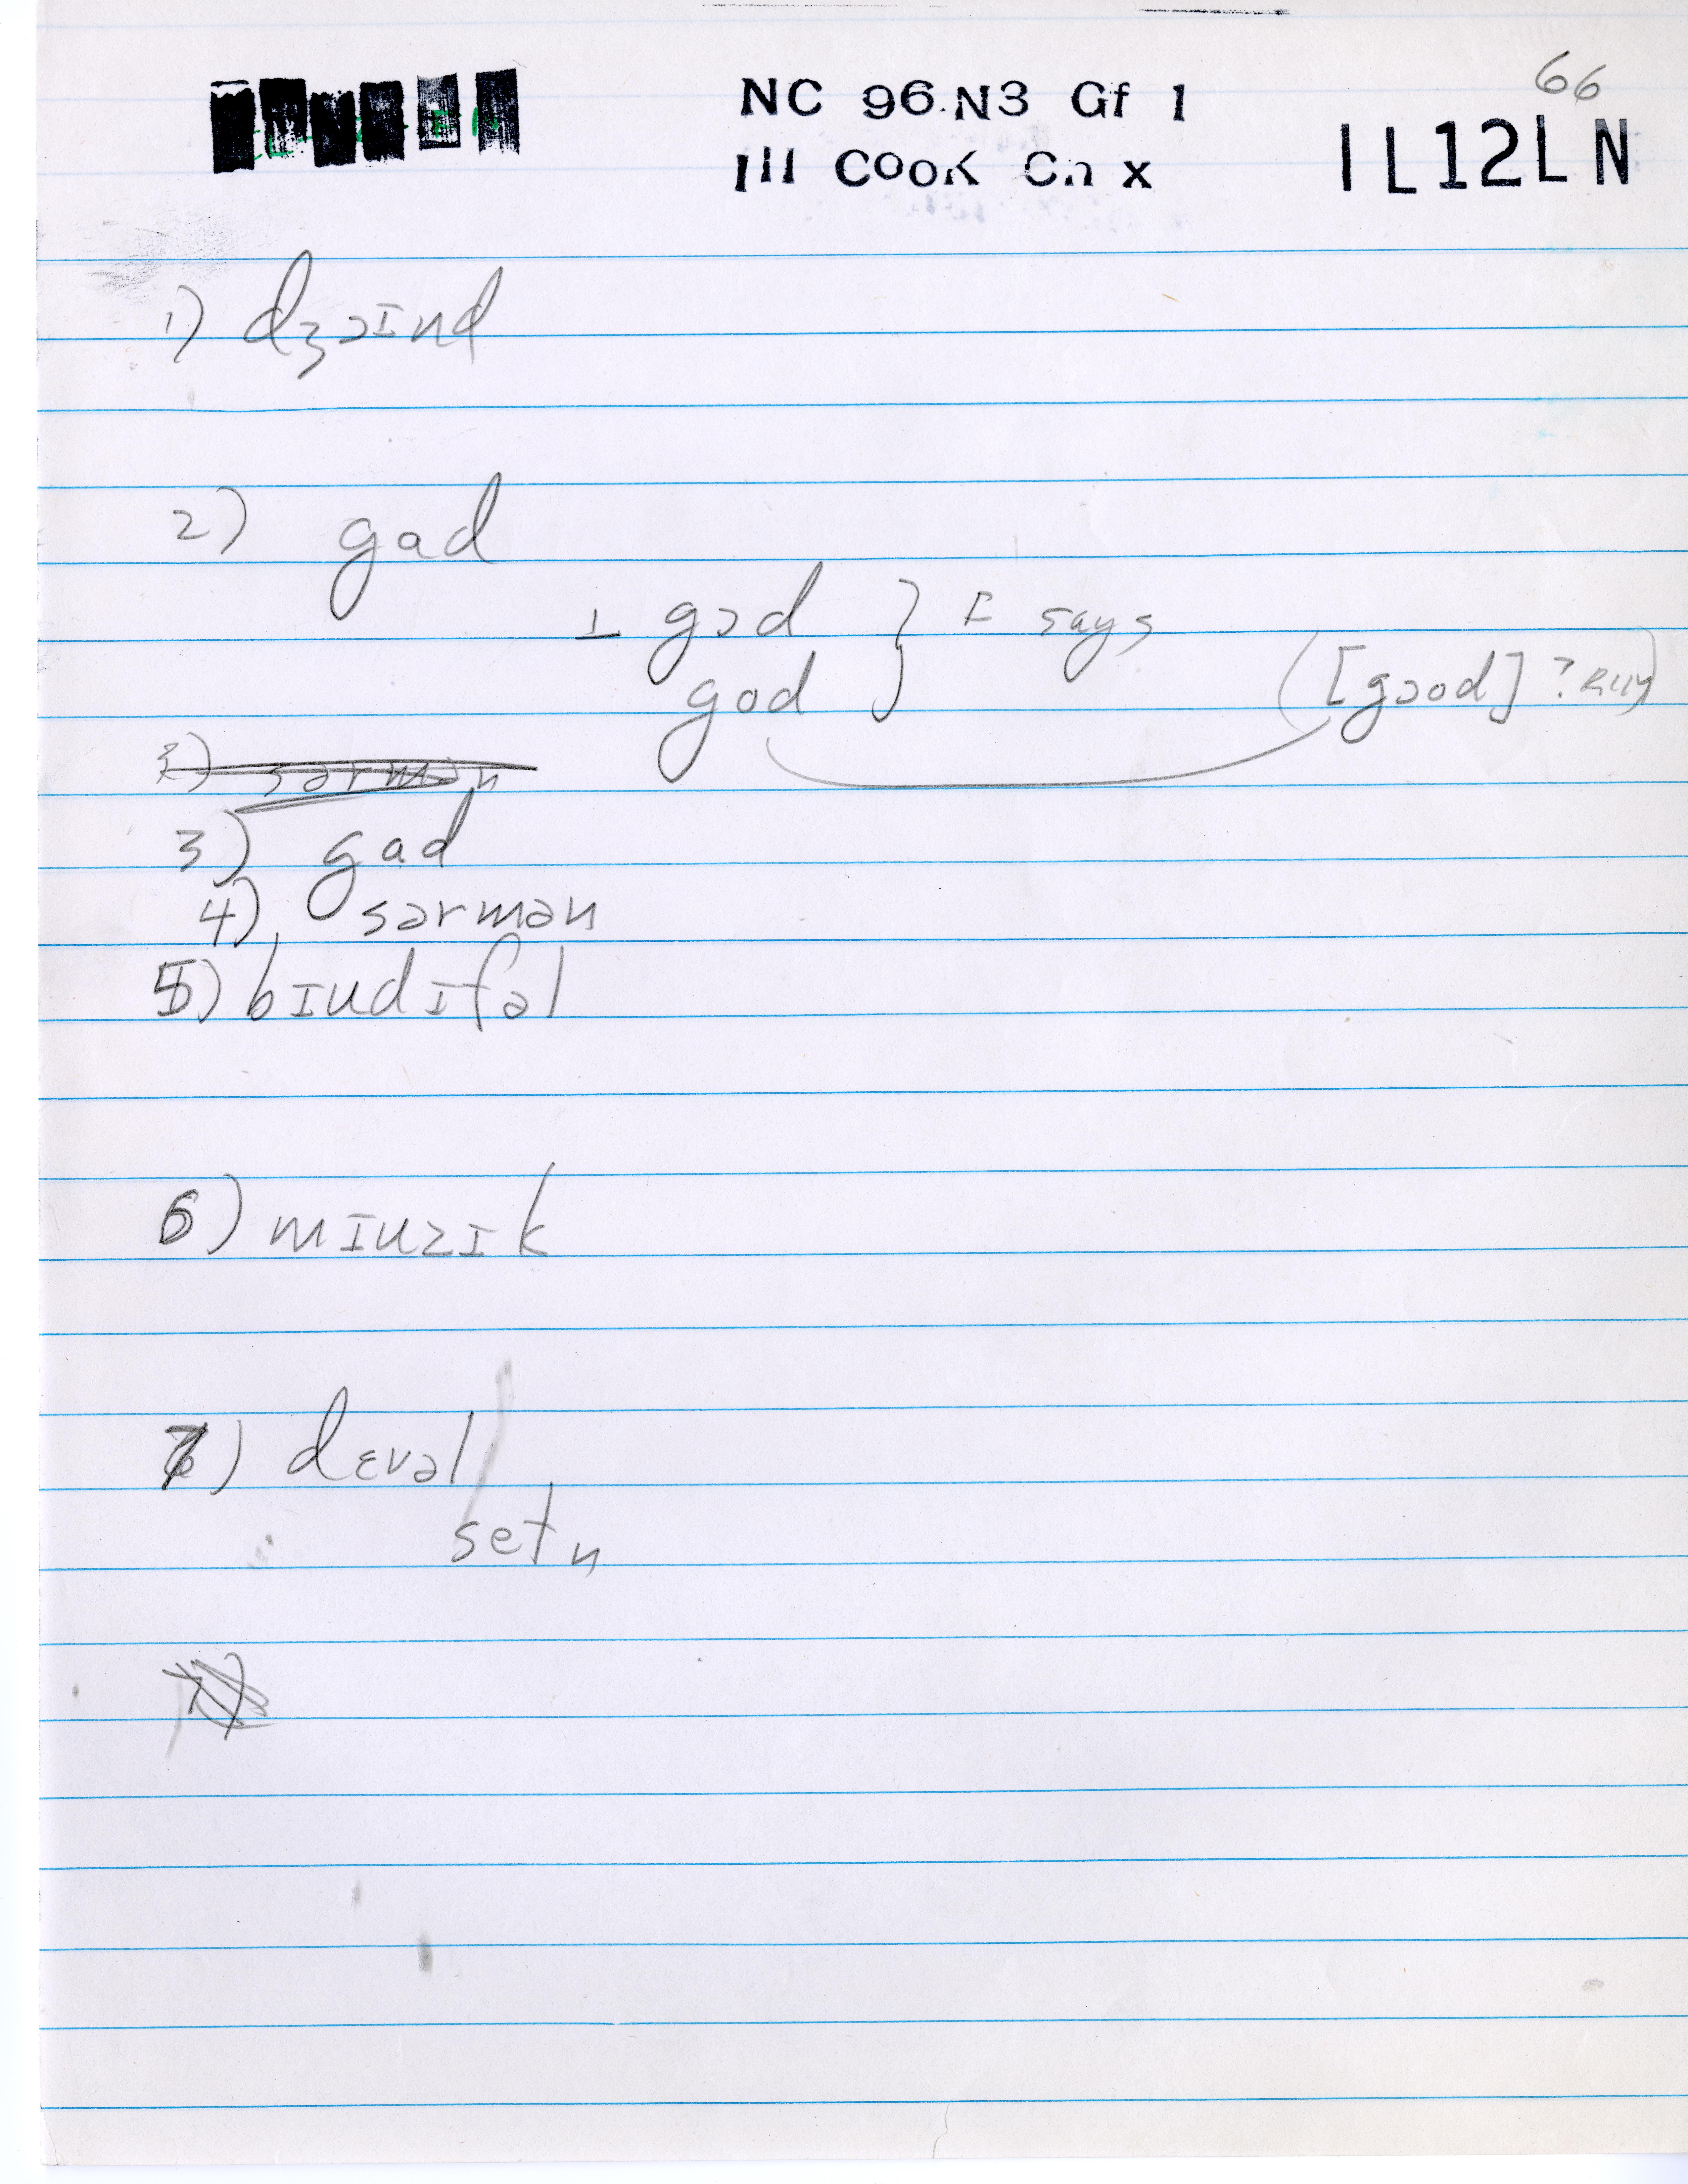 66
NC 96.N3 Gf 1
Ill Cook Cn x
IL12LN
1) dʒɔɪnd
2) gad
⊥ gɔd } F says
god ([gɔod] ?
3) sərmən
3) gad
4) sərmən
5) bɪudɪfəl
6) mɪuzɪk
7) dɛvəl
setn